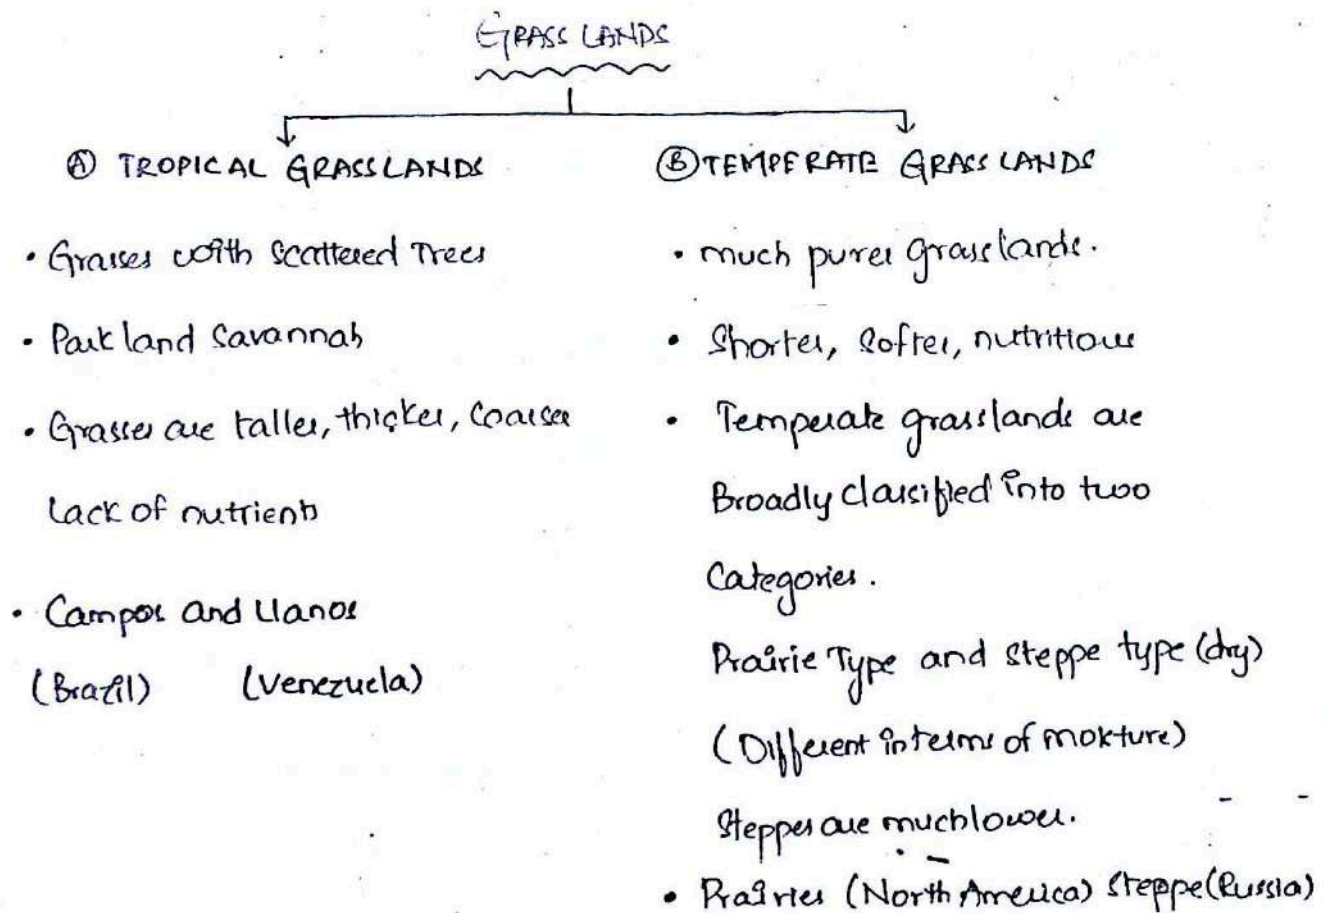 GRASS LANDS
Ⓐ TROPICAL GRASSLANDS
• Grasses with Scattered Trees
• Park land Savannah
• Grasses are taller, thicker, Coarser
Lack of nutrients
• Campos and Llanos
(Brazil) (Venezuela)
Ⓑ TEMPERATE GRASS LANDS
• much purer grasslands.
• Shorter, Softer, nutritious
• Temperate grasslands are
Broadly classified into two
Categories.
Prairie Type and steppe type (dry)
(Different in terms of moisture)
Steppes are much lower.
• Prairies (North America) Steppe (Russia)